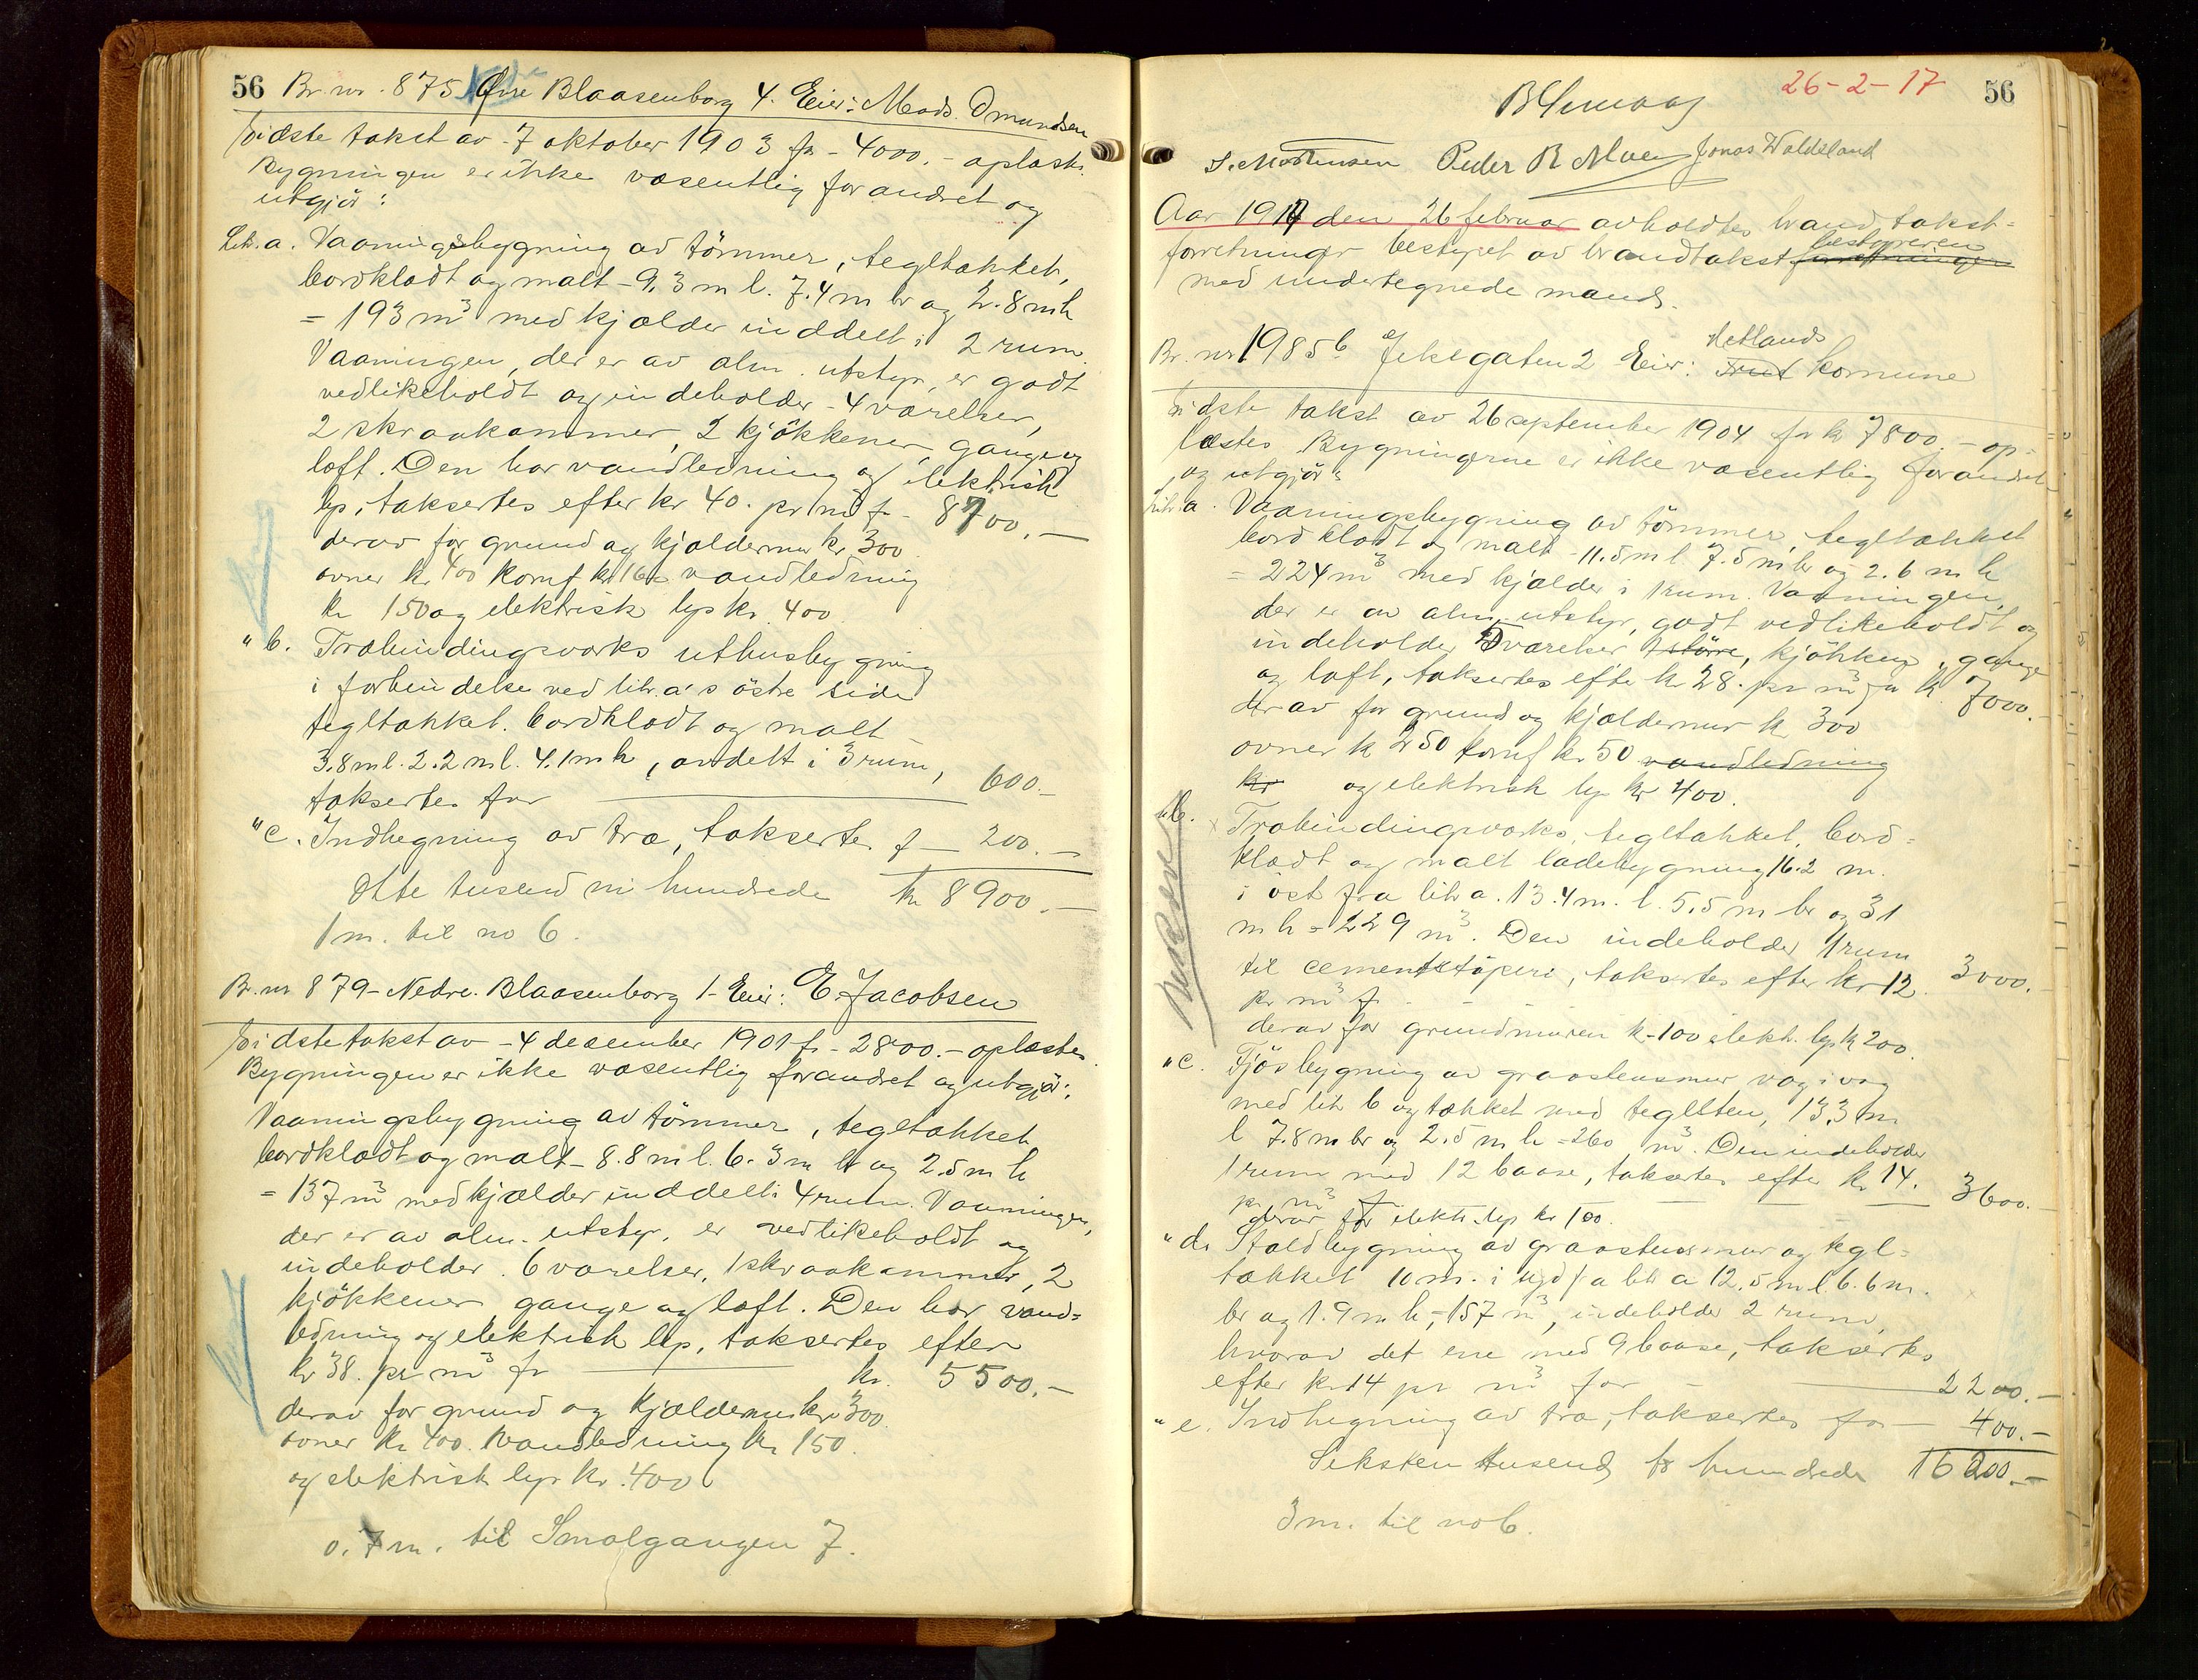 56 Br. nr. 875 Øvre Blaasenborg 4. Eier: Mads Omundsen
Sidste takst av 7 oktober 1903 fr - 4000.- oplæstes.
Bygningen er ikke væsentlig forandret og
utgjör:
Litr. a. Vaaningsbygning av tömmer, tegltækket,
bordklædt og malt - 9.3 m l. 7.4 m br og 2.8 m h
= 193 m³ med kjælder inddelt i 2 rum.
Vaaningen, der er av alm. utstyr, er godt
vedlikeholdt og indeholder - 4 værelser,
2 skraakammer, 2 kjökkener, gange og
loft. Den har vandledning og elektrisk
lys, taksertes efter kr 40. pr m³ fr - 8700.-
derav for grund og kjældermur kr. 300
ovner kr 400 komf kr 160 vandledning
kr 150 og elektrisk lys kr. 400
" b. Træbindingsværks uthusbygning
i forbindelse ved litr. a's östre side
tegltækket. bordklædt og malt -
3.8 m l. 2.2 m l. 4.1 m h, avdelt i 3 rum,
taksertes for 600.-
" c. Indhegning av træ, taksertes f - 200.-
Otte tusend ni hundrede kr 8900.-
1 m. til no 6.
Br. nr 879 - Nedre Blaasenborg 1 - Eier: E. Jacobsen
Sidste takst av - 4 desember 1901 fr - 2800.- oplæstes.
Bygningen er ikke væsentlig forandret og utgjör:
Vaaningsbygning av tömmer, tegltækket,
bordklædt og malt - 8.8 m l. 6.3 m br og 2.5 m h
= 137 m³ med kjælder inddelt i 4 rum. Vaaningen,
der er av alm. utstyr, er vedlikeholdt og
indeholder 6 værelser, 1 skraakammer, 2
kjökkener, gange og loft. Den har vand=
ledning og elektrisk lys, taksertes efter
kr 38. pr m³ fr kr. 5500.-
derav for grund og kjældermur kr 300
ovner kr 400. vandledning kr 150.
og elektrisk lys kr. 400
0.7 m. til Smalgangen 7.
26-2-17 56
S. Mortensen Peder R Moen Jonas Waldeland
Aar 1917 den 26 februar avholdtes brandtakst=
forretninger bestyret av brandtakst forretninger bestyreren
med undertegnede mænd.
Br. nr 1985 b Jekegaten 2 Eier: Hetlands komune
Sidste takst av 26 september 1904 for kr 7800.- op=
læstes. Bygningerne er ikke væsentlig forandret
og utgjör:
Litr. a. Vaaningsbygning av tömmer, tegltækket
bordklædt og malt - 11.5 m l 7.5 m br og 2.6 m h
= 224 m³ med kjælder i 1 rum. Vaaningen,
der er av alm. utstyr, godt vedlikeholdt og
indeholder 5 værelser 1 större, kjökken, gange
og loft, taksertes efter kr 28. pr m³ for kr 7000.-
derav for grund og kjældermur kr 300
ovner kr 250 komf kr. 50 vandledning
kr og elektrisk lys kr 400.
" b. Træbindingsværks, tegltækket, bord=
klædt og malt ladebygning 16.2 m.
i öst fra litr a. 13.4 m. l. 5.5 m br og 3.1
m h = 229 m³. Den indeholder 1 rum
til cementstöperi, taksertes efter kr 12
pr m³ f. 3000.
derav for grundmuren kr 100 elektr. lys kr 200.
" c. Fjösbygning av graastensmur væg i væg
med litr b og tækket med teglsten, 13.3 m
l 7.8 m br og 2.5 m h = 260 m³. Den indeholder
1 rum med 12 baase, taksertes efter kr 14.
pr m³ f 3600.
derav for elektr. lys kr 100.
" d. Staldbygning av graastensmur og tegl=
tækket 10 m. i syd fra litr a 12.5 m l 6.6 m.
br og 1.9 m h = 157 m³, indeholder 2 rum,
hvorav det ene med 9 baase, taksertes
efter kr 14 pr m³ for 2200.-
" e. Indhegning av træ, taksertes for - 400.-
Seksten tusend to hundrede 16200.-
3 m. til no 6.